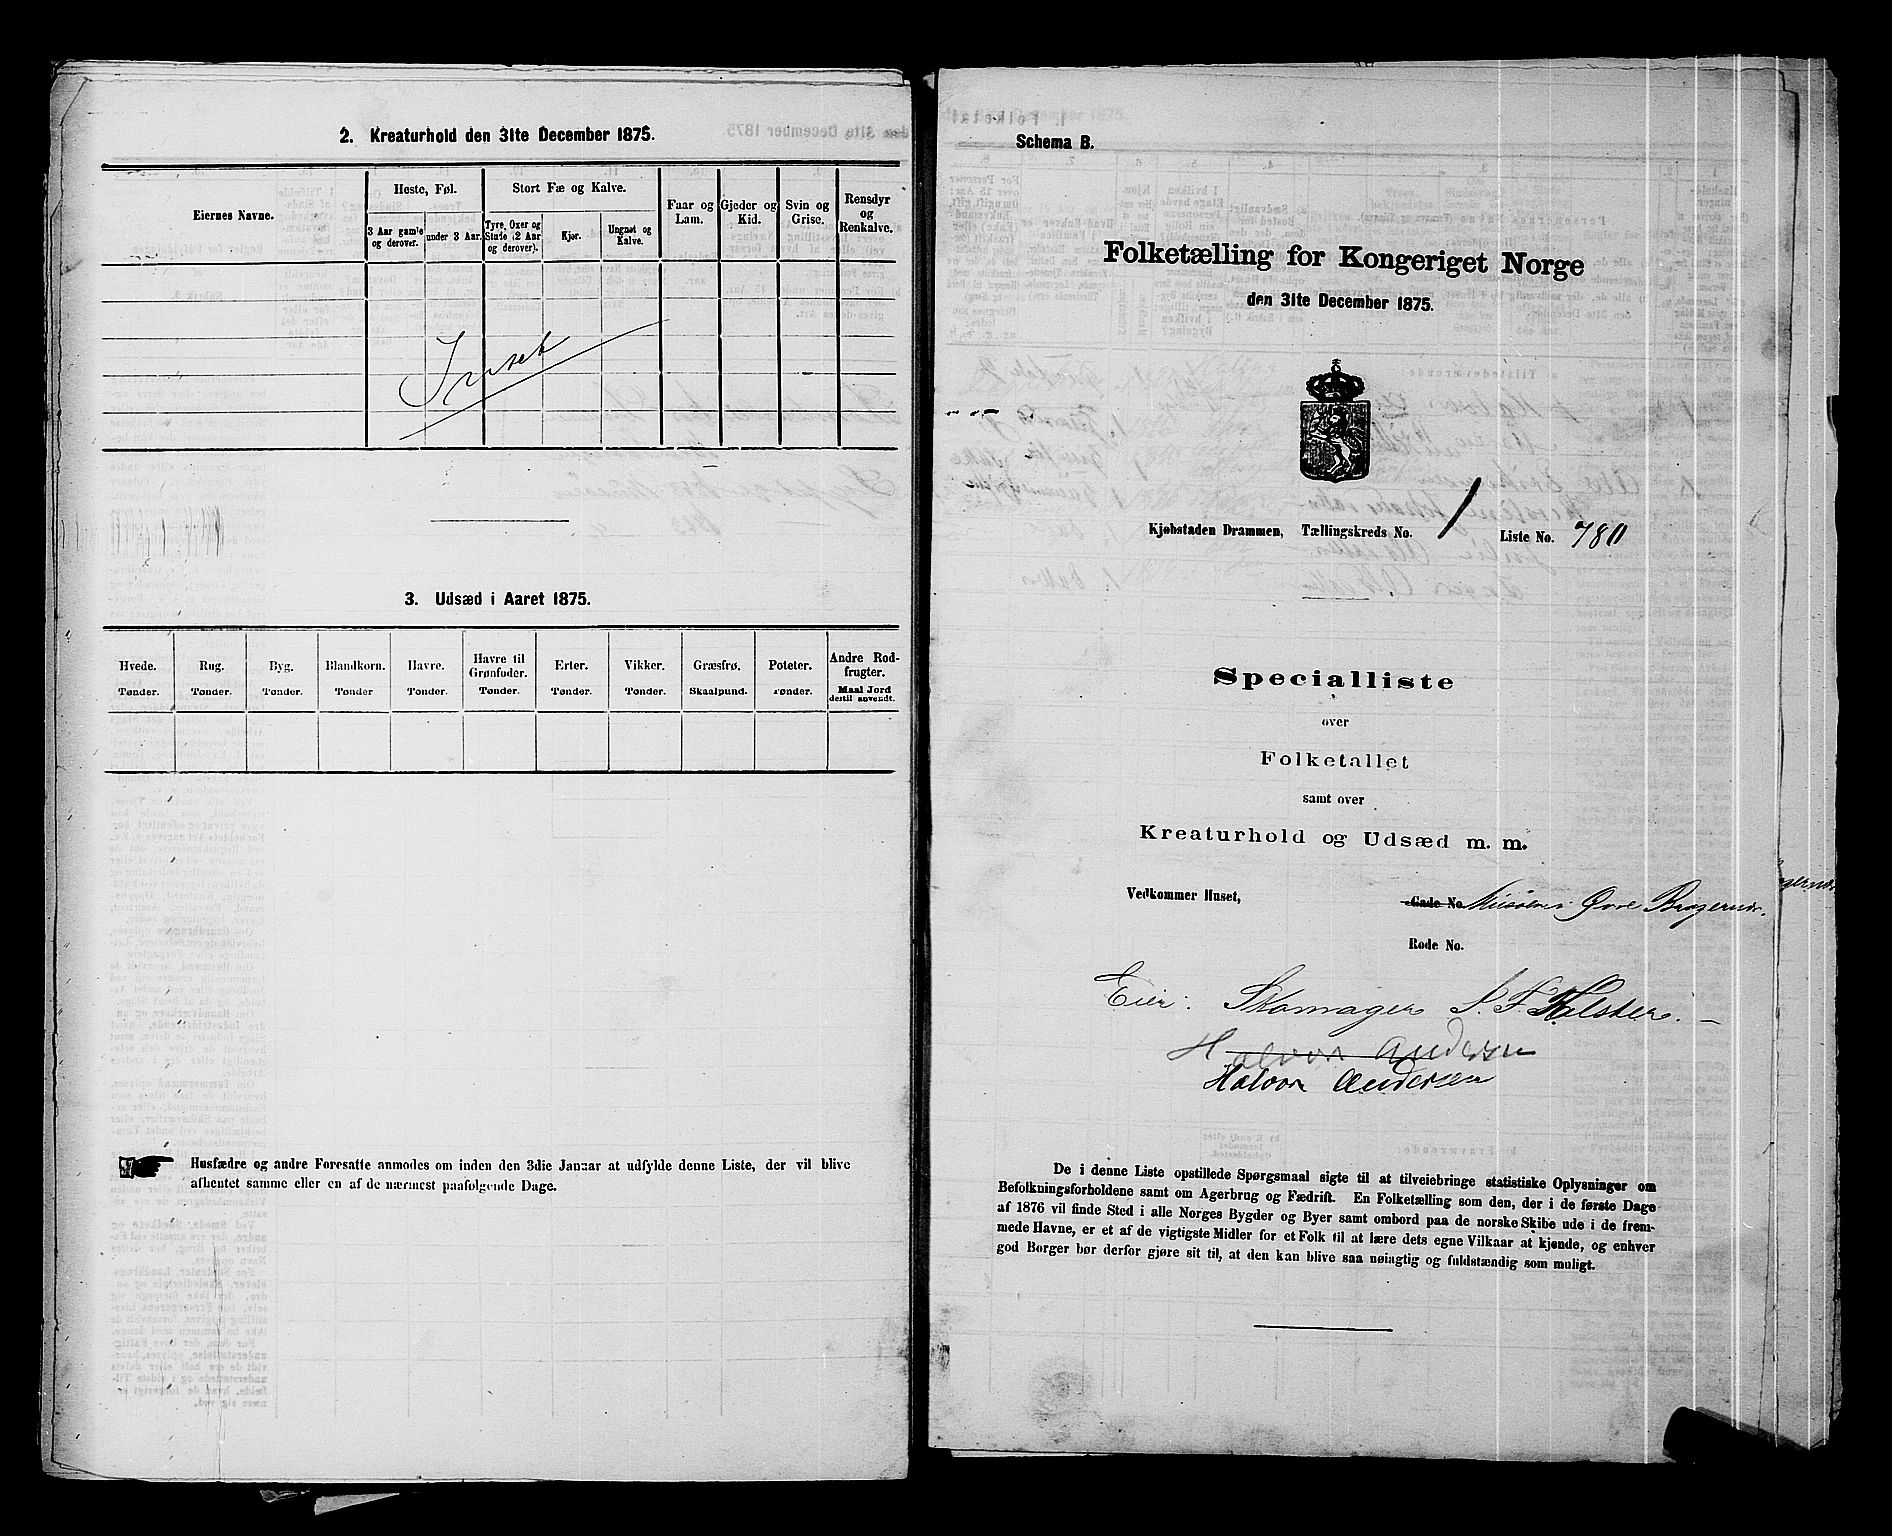 2. Kreaturhold den 31te December 1875.
Eiernes Navne.
Heste, Føl.
3 Aar gamle og derover.
under 3 Aar.
Stort Fæ og Kalve.
Tyre, Oxer og Stude (2 Aar og derover).
Kjør.
Ungnøt og Kalve.
Faar og Lam.
Gjeder og Kid.
Svin og Grise.
Rensdyr og Renkalve.
Intet
3. Udsæd i Aaret 1875.
Hvede. Tønder.
Rug. Tønder.
Byg. Tønder.
Blandkorn. Tønder
Havre. Tønder.
Havre til Grønfoder. Tønder.
Erter. Tønder.
Vikker. Tønder.
Græsfrø. Skaalpund.
Poteter. Tønder.
Andre Rodfrugter. Maal Jord dertil anvendt.
Husfædre og andre Foresatte anmodes om inden den 3die Januar at udfylde denne Liste, der vil blive
afhentet samme eller en af de nærmest paafølgende Dage.
Schema B.
Folketælling for Kongeriget Norge
den 31te December 1875.
Kjøbstaden Drammen, Tællingskreds No. 1 Liste No. 780
Specialliste
over
Folketallet
samt over
Kreaturhold og Udsæd m. m.
Vedkommer Huset, Gade No. Øvre Bragernæs.
Rode No.
Eier: Skomager S. F. Holster. –
Halvor Andersen
Halvor Andersen
De i denne Liste opstillede Spørgsmaal sigte til at tilveiebringe statistiske Oplysninger om
Befolkningsforholdene samt om Agerbrug og Fædrift. En Folketælling som den, der i de første Dage
af 1876 vil finde Sted i alle Norges Bygder og Byer samt ombord paa de norske Skibe ude i de frem-
mede Havne, er et af de vigtigste Midler for et Folk til at lære dets egne Vilkaar at kjende, og enhver
god Borger bør derfor gjøre sit til, at den kan blive saa nøiagtig og fuldstændig som muligt.